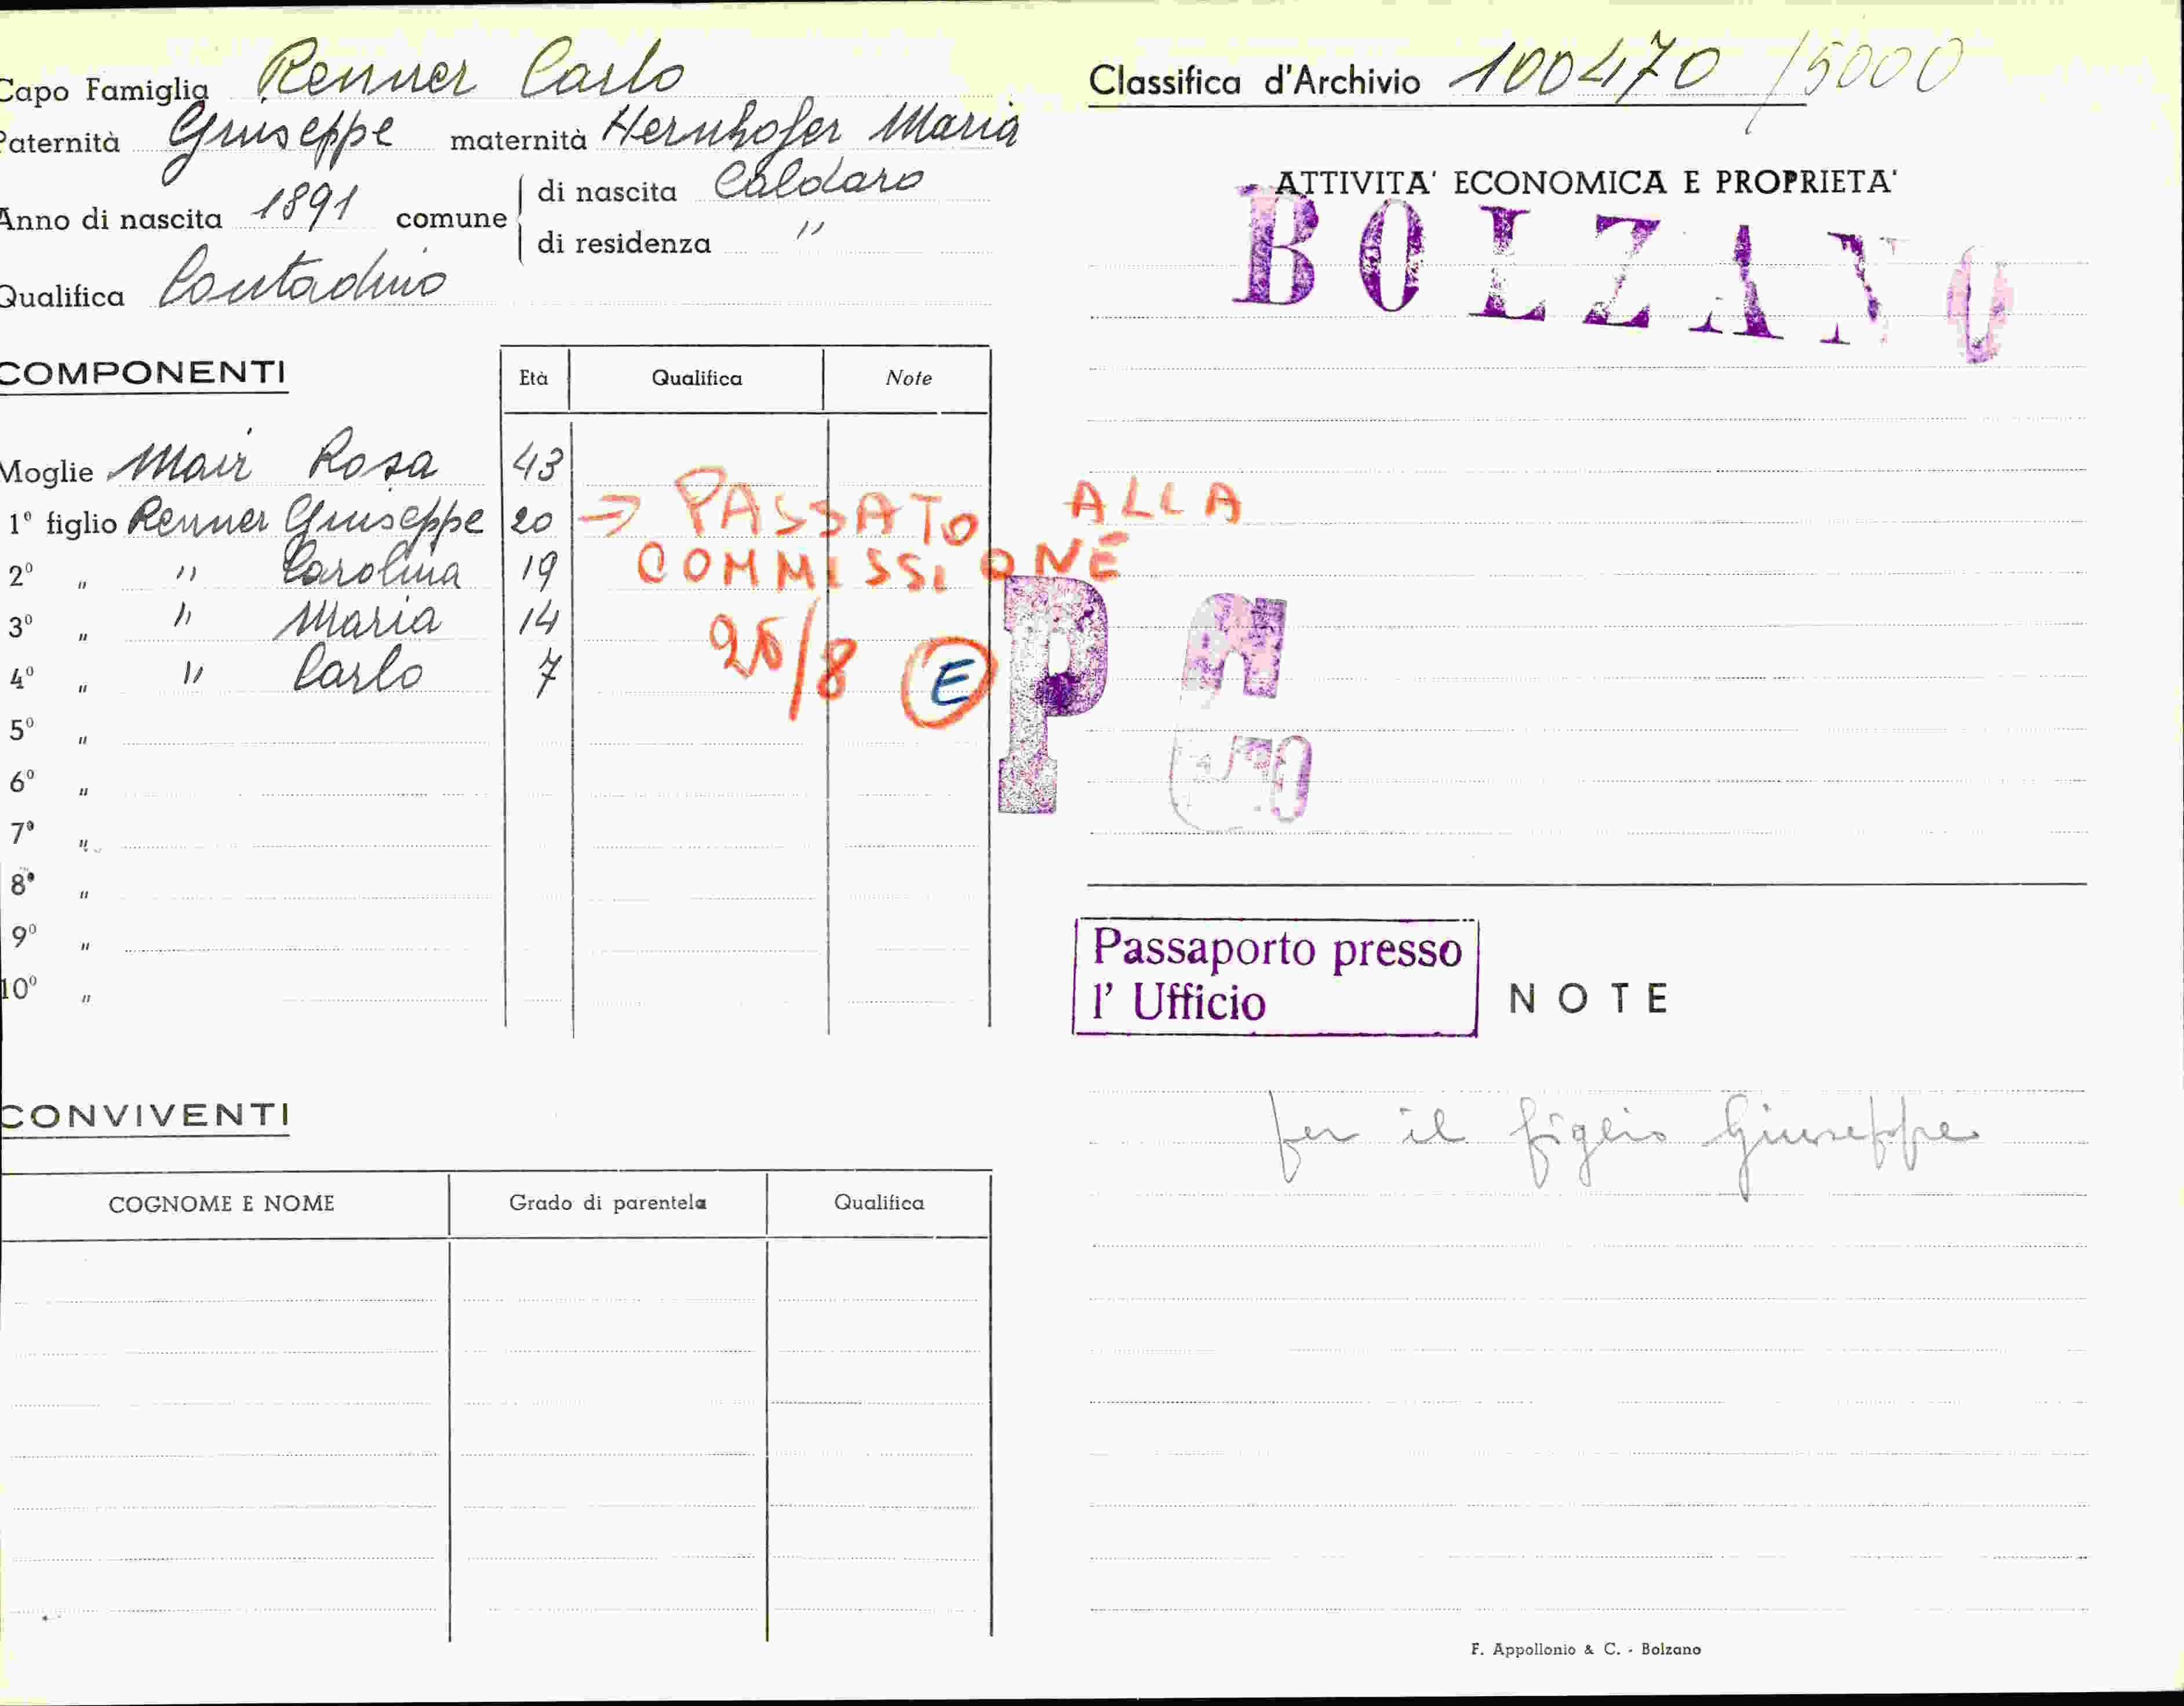 Capo Famiglia Renner Carlo
Paternità Giuseppe maternità Hernhofer Maria
Anno di nascita 1891 comune di nascita Caldaro
di residenza "
Qualifica Contadino
COMPONENTI Età Qualifica Note
Moglie Mair Rosa 43
1º figlio Renner Giuseppe 20 → PASSATO ALLA
2º " " Carolina 19 COMMISSIONE
3º " " Maria 14
4º " " Carlo 7 26/8 E
5º "
6º "
7º "
8º "
9º "
10º "
CONVIVENTI
COGNOME E NOME Grado di parentela Qualifica
Classifica d'Archivio 100470 /5000
ATTIVITA' ECONOMICA E PROPRIETA'
BOLZANO
P
Passaporto presso
l' Ufficio
NOTE
per il figlio Giuseppe
F. Appollonio & C. - Bolzano